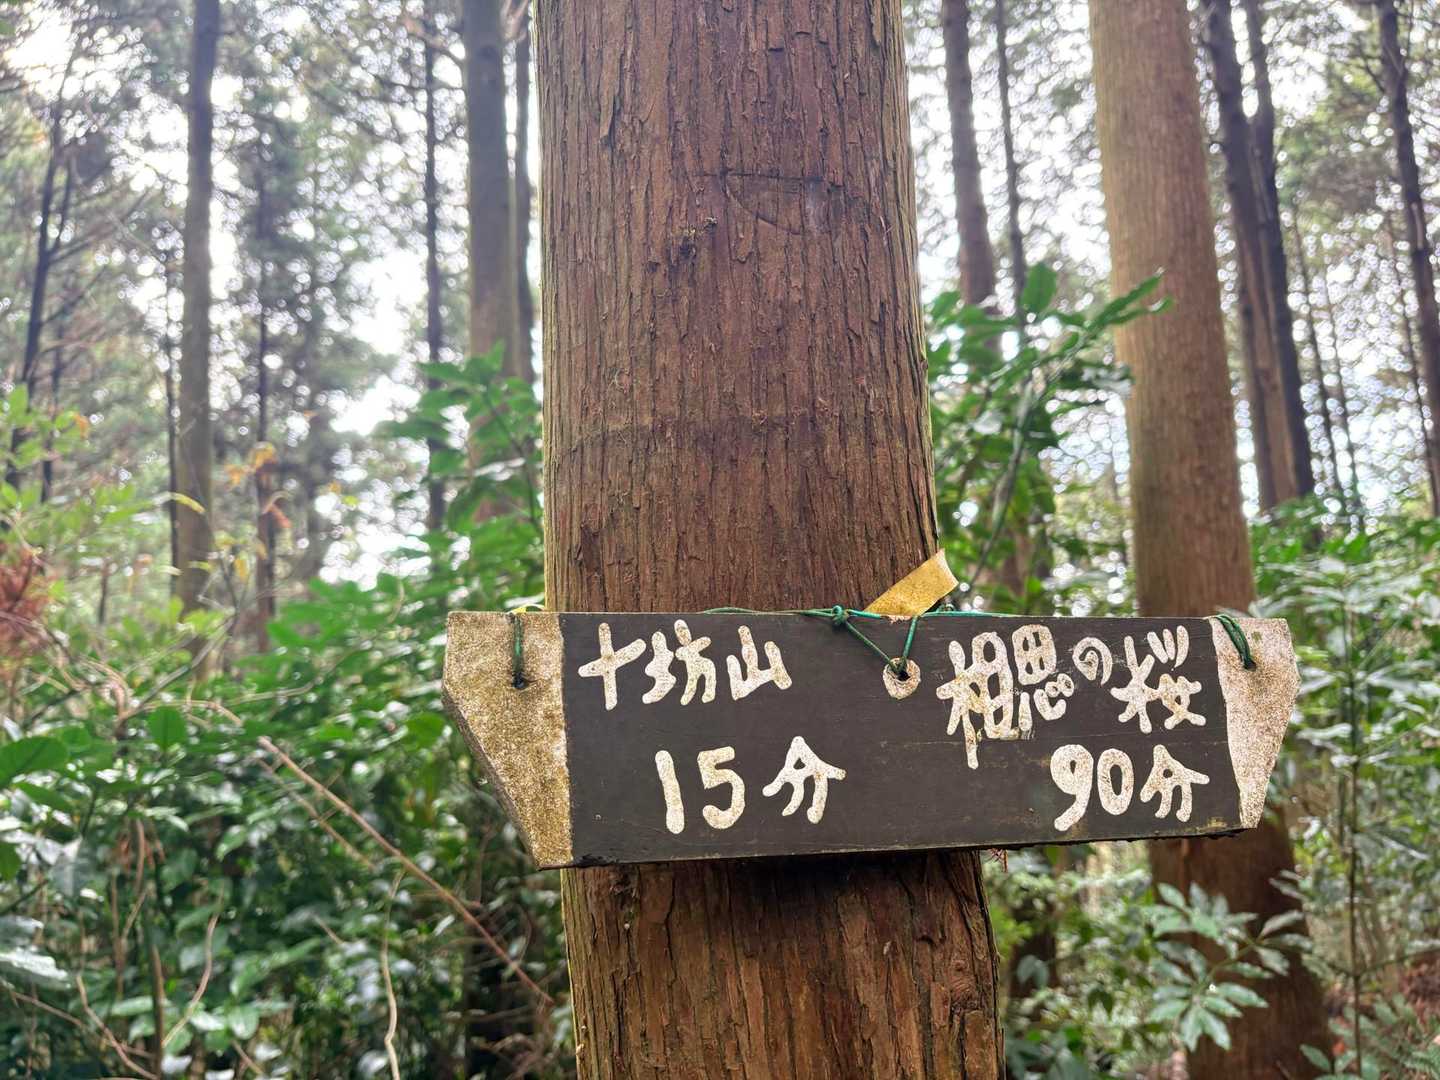 十坊山
15分
相思の桜
90分